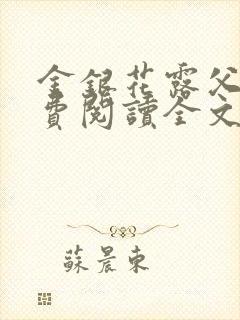 金銀花露父
費閱讀全文
蘇晨東